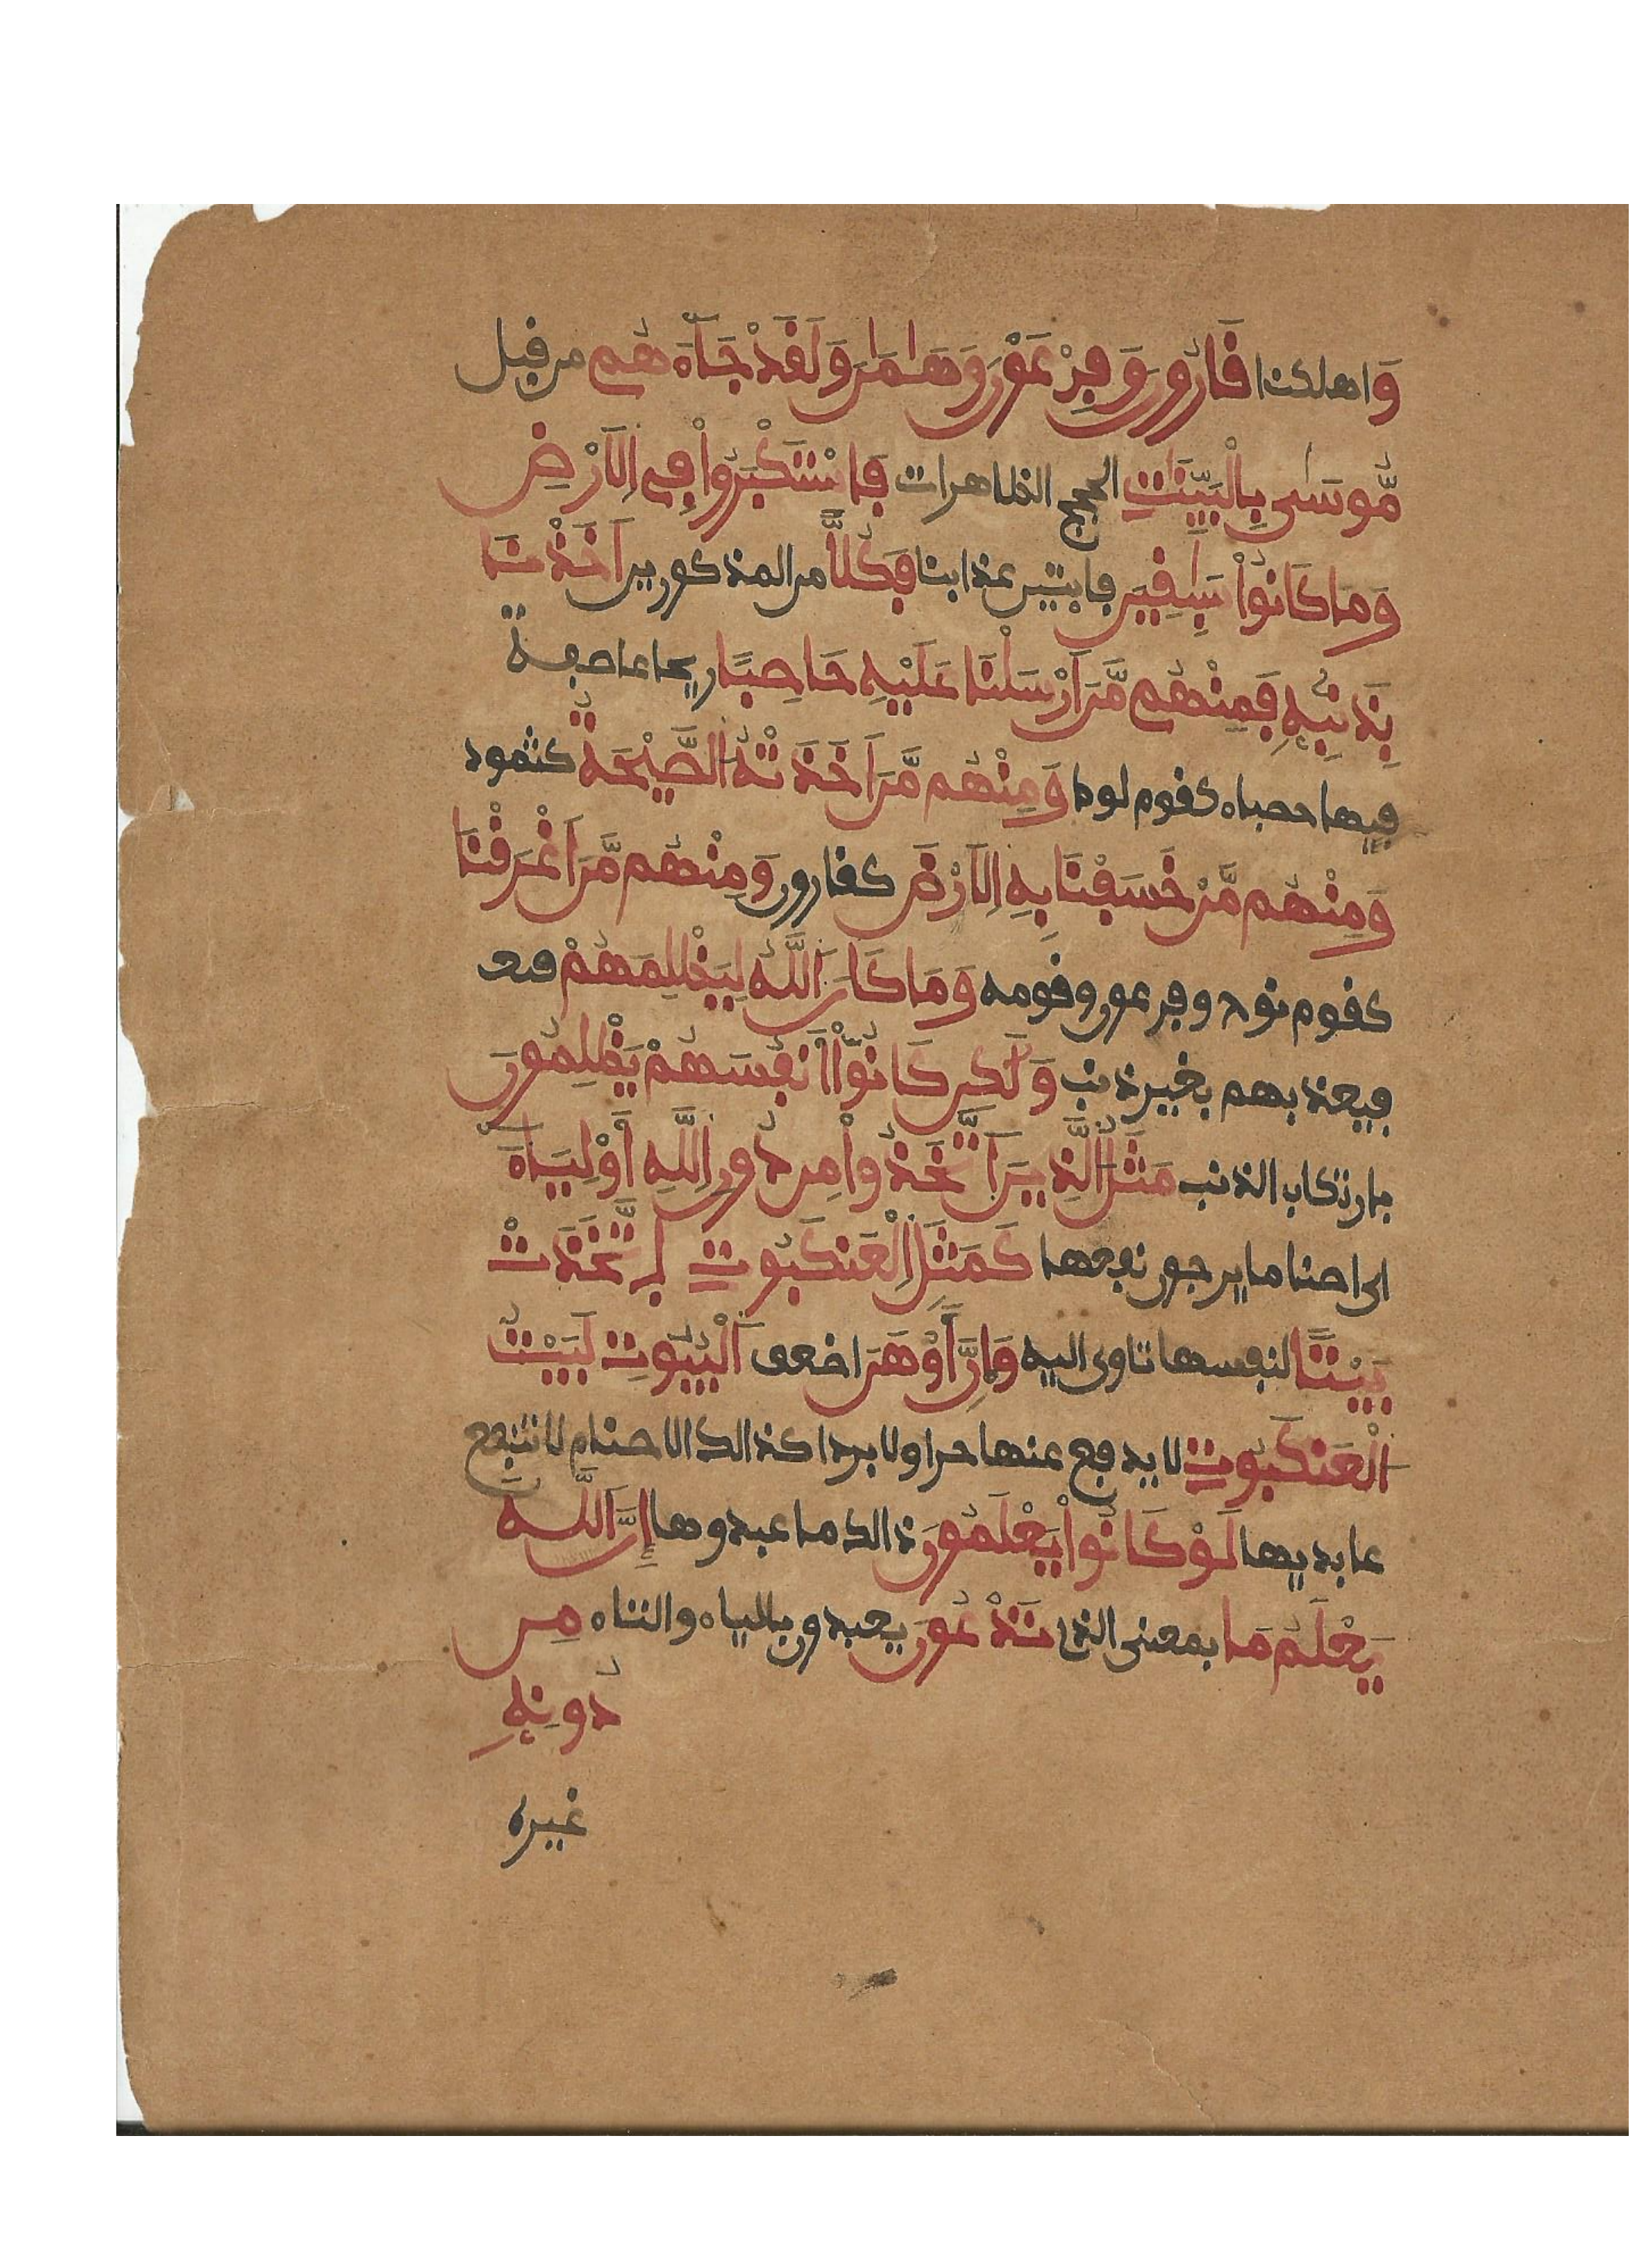 وَاهلكنا قَارُونَ وَفِرْعَوْنَ وَهَامَٰنَ وَلَقَدْ جَآءَهُم من قبل
مُّوسَىٰ بِالْبَيِّنَٰتِ الحجج الظاهرات فَاسْتَكْبَرُواْ فِى اِلَارْضِ
وَمَا كَانُواْ سَٰبِقِينَ فايتين عذابنا فَكُلّاً من المذكورين اَخَذْنَا
بِذَنۢبِهِۦ فَمِنْهُم مَّنَ اَرْسَلْنَا عَلَيْهِ حَاصِبًا ريحا عاصفة
فيها حصباء كقوم لوط وَمِنْهُم مَّنَ اَخَذَتْهُ الصَّيْحَةُ كثمود
وَمِنْهُم مَّنْ خَسَفْنَا بِهِ اِلَارْضَ كقارون وَمِنْهُم مَّنَ اَغْرَقْنَا
كقوم نوح وفرعون وقومه وَمَا كَانَ اَللَّهُ لِيَظْلِمَهُمْ
فيعذبهم بغير ذنب وَلَٰكِن كَانُوٓاْ أَنفُسَهُمْ يَظْلِمُونَ
بارتكاب الذنب مَثَلُ الَّذِينَ اَتَّخَذُواْ مِن دُونِ اِللَّهِ أَوْلِيَآءَ
اى اصناما يرجون نفعها كَمَثَلِ اِلْعَنكَبُوتِ اِتَّخَذَتْ
بَيْتًا لنفسها تاوى اليه وَإِنَّ أَوْهَنَ اضعف اَلْبُيُوتِ لَبَيْتُ
الْعَنكَبُوتِ لا يدفع عنها حرا ولا بردا كذالك الاصنام لا تنفع
عابديها لَوْ كَانُواْ يَعْلَمُونَ ذالك ما عبدوها إِنَّ اَللَّهَ
يَعْلَمُ مَا بمعنى الذى تَدْعُونَ يعبدون بالياء والتاء مِن
دُونِهِۦ
غيره